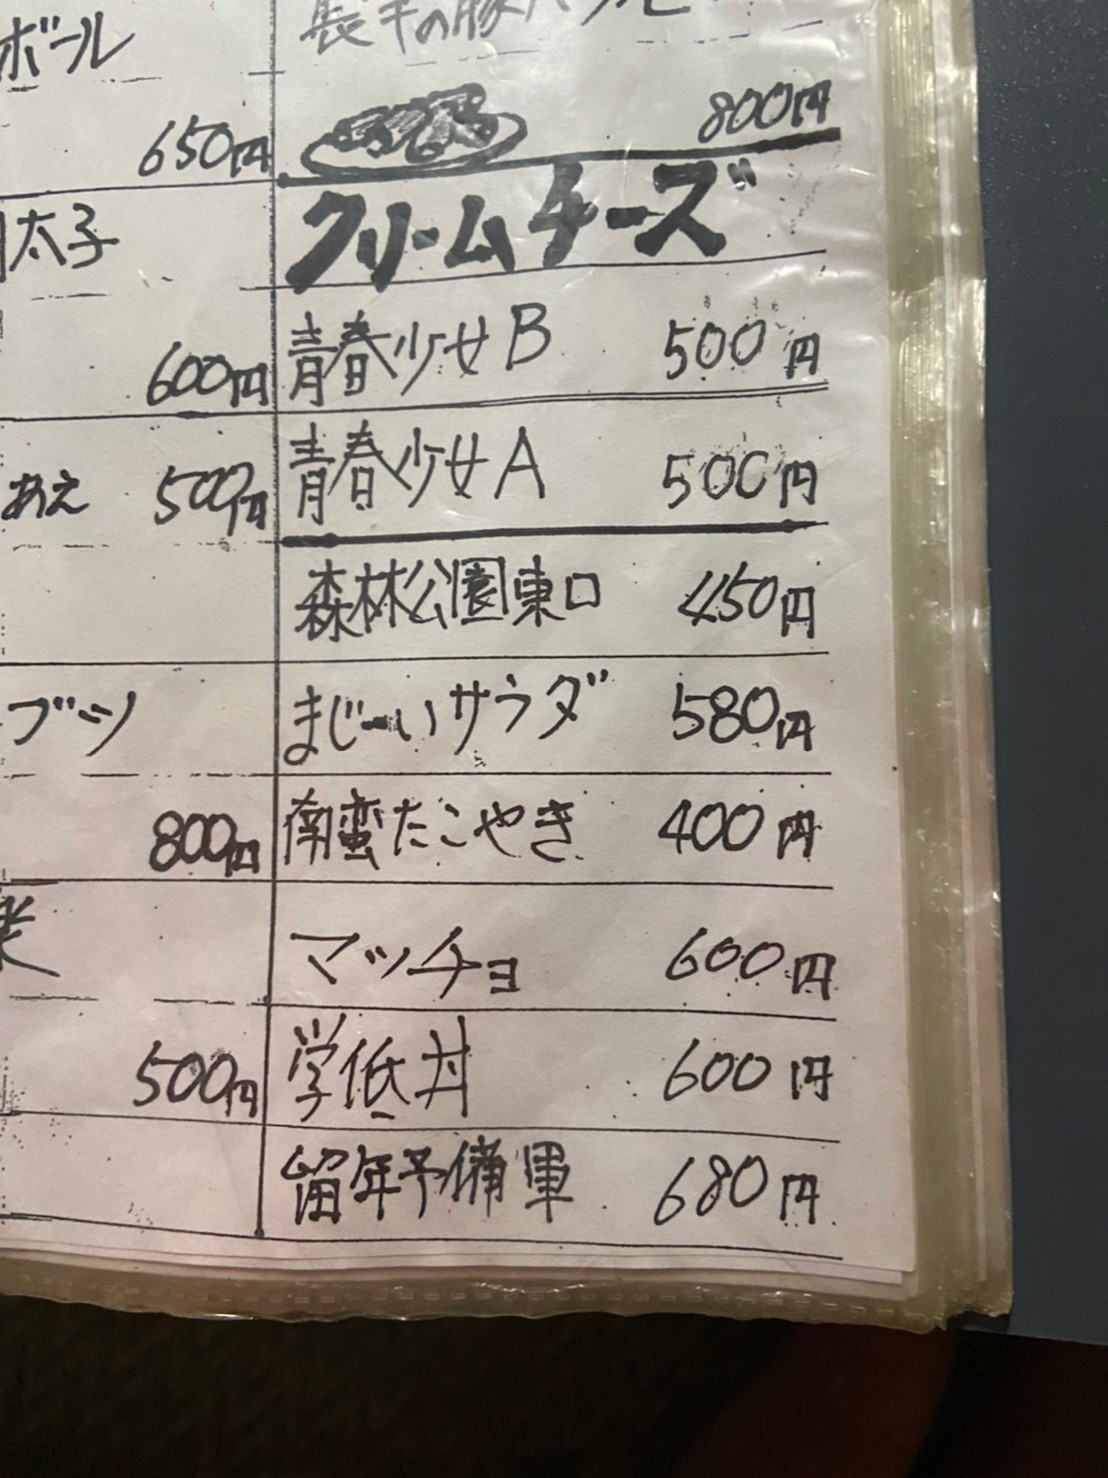 ボール
650円
太子
600円
あえ 500円
ブーツ
800円
500円
800円
クリームチーズ
青春少女B 500円
青春少女A 500円
森林公園東口 450円
まじーいサラダ 580円
南蛮たこやき 400円
マッチョ 600円
学低丼 600円
留年予備軍 680円